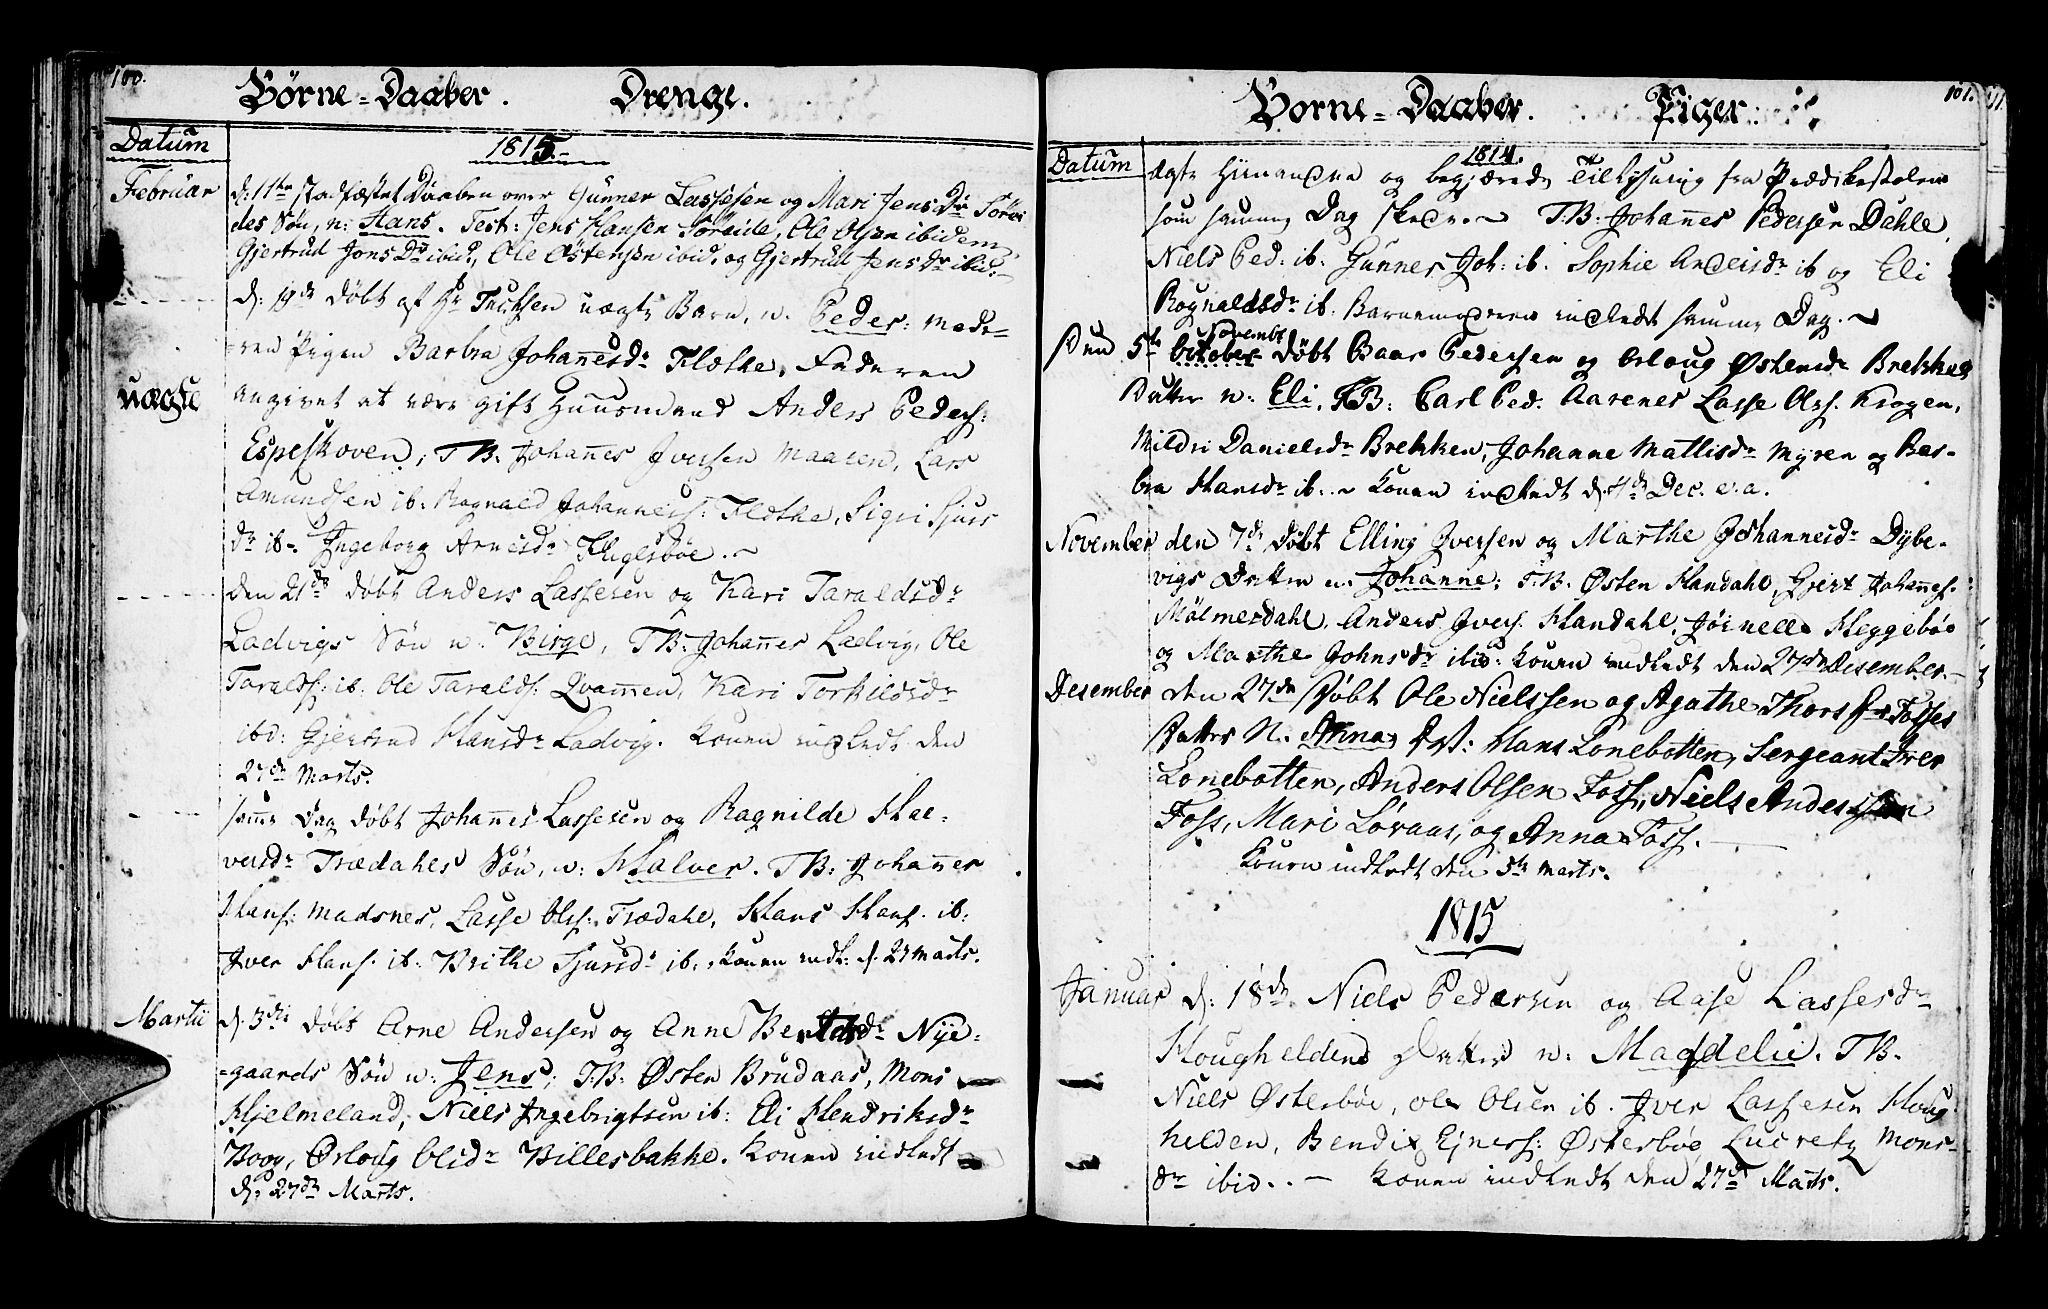 100.
Börne=Daaber. Drenge.
Datum 1815.
Februar d: 11te stadfæstet Daaben over Gunner Lassesen og Mari Jens Dr Sörei
des Sön, n: Hans. Test: Jens Hansen Söreide, Ole Olsen ibidem
Gjertrud Jons Dr ibid, Ole Östensen ibid, og Gjertrud Jens Dr ibid.
d: 14de döbt af Hr uægte Barn, n. Peder: mode=
=ren Pigen Barbra Johannesdr Flöthe, Faderen
uægte angivet at være gift Huusmand Anders Peders:
Espeskoven; TB. Johannes Iversen Maaren, Lars
Amundsen ib. Ragnald Johanness: Flöthe, Sigri Sjurs
dr ib- Ingeborg Arnesdr Fluglsböe. ~
den 21de döbt Anders Lassesen og Kari Taraldsdr
Ladvigs Sön n: Birge, TB: Johannes Ladvig, Ole
Taralds: ib. Ole Taralds: Qvammen, Kari Torkildsdr
ibd: Gjertrud Hansdr Ladvig. Konen indledt den
27de Marts.
samme Dag döbt Johannes Lassesen og Ragnilde Hal=
versdr Trædahls Sön, n: Halver. TB: Johannes
Hans: Madsnes, Lasse Ols: Trædahl, Hans Hans. ib:
Iver Hans. ib. Brithe Sjursdr ib: Konen indl: d. 27 Marts.
Martii d. 3die döbt Arne Andersen og Anne Bentsdr Nye=
=gaards Sön n: Jens; TB: Östen Brudaas, Mons
Hjelmeland, Niels Ingebrigtsen ib: Eli Hendriksdr
Boog, Örloug Olsdr Billesbakke. Konen indledt
d: 27de Marts.
101.
Börne=Daaber. Piger.
Datum 1814.
og begjærede Tillysning fra Prædikestolen
som samme Dag skede. ~ TB: Johannes Pedersen Dahle,
Niels Ped: ib: Gunner Joh: ib. Sophie Andersdr ib og Eli
Rognaldsdr ib. Barnemoderen indledt samme Dag. ~
Den 5te October Novembr döbt Baar Pedersen og Orloug Östensdr Brekkes
Datter n: Eli, TB: Carl Ped. Aarenes Lasse Ols. Krogen,
Mildri Danielsdr Brekken, Johanne Mattisdr Myren og Bar=
bra Hansdr ib. ~ Konen indledt d. 4de Dec. e.a.
November den 7de döbt Elling Iversen og Marthe Johannesdr Dybe=
vigs Datter n. Johanne; TB. Östen Handahl, Gjert Johannes.
Mölmesdahl, Anders Ivers. Handahl, Jörnell Heggeböe
og Marthe Johnsdr ibid: Konen indledt den 27de Desember.
Desember den 27de Döbt Ole Nielssen og Agathe Thors Dr Fosses
Datter N. Anna, Hans Lonebotten, Sergeant Iver
Lonebotten, Anders Olsen Foss, Niels Anderssen
Foss, Mari Lövaas, og Anna Foss.
Konen indledt den 5te Marts.
1815
Januar d: 18de Niels Pedersen og Aase Lassesdr
Hougheldens Datter n: Magdelie. TB.
Niels Österböe, Ole Olsen ib. Iver Lassesen Houg
helden, Bendix Ejners: Österböe, Lucrety Mons=
dr ibid.. — Konen indledt den 27de Marts.